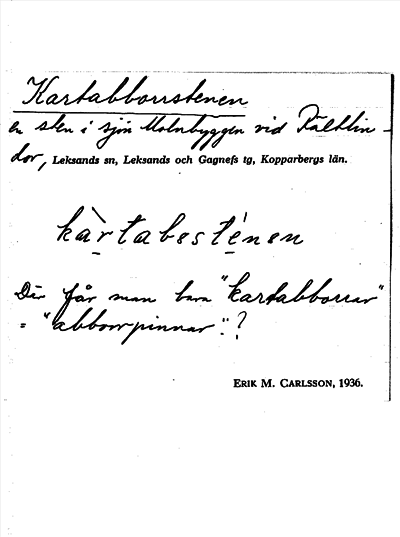 Kartabborrstenen
en sten i sjön Molnbyggen vid Rältlin-
dor, Leksands sn, Leksands och Gagnefs tg, Kopparbergs län.
kàrtabosténen
Där får man bara "kartabborrar"
= "abborrpinnar". ?
ERIK M. CARLSSON, 1936.